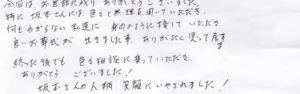 今回は、お世話に成り ありがとうございました。
特に 坂本さんには、色々と無理を聞いていただき、
何も分からない私達に 親切のように接していただき、
良いお葬式が 出来ました事、ありがたく思って居ます
終った後でも 色々相談に乗っていただき、
ありがとう ございました!
坂本さんの人柄、笑顔にいやされました!